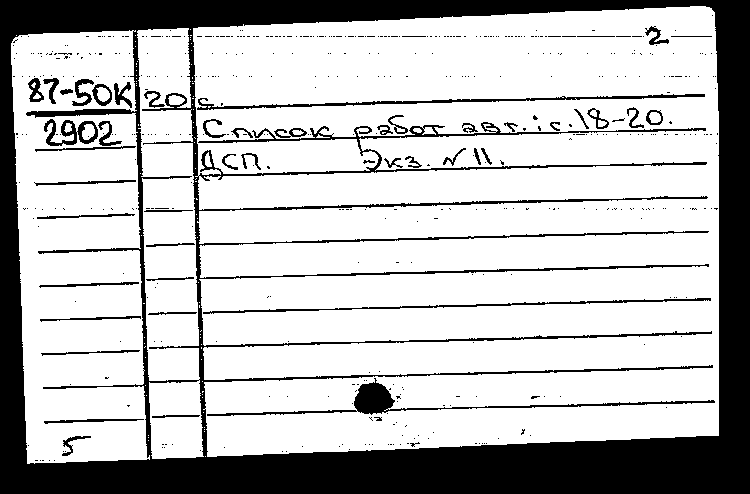 2
87-50К 20 с.
2902 Список работ авт.: с. 18-20.
ДСП. Экз. № 11.
5